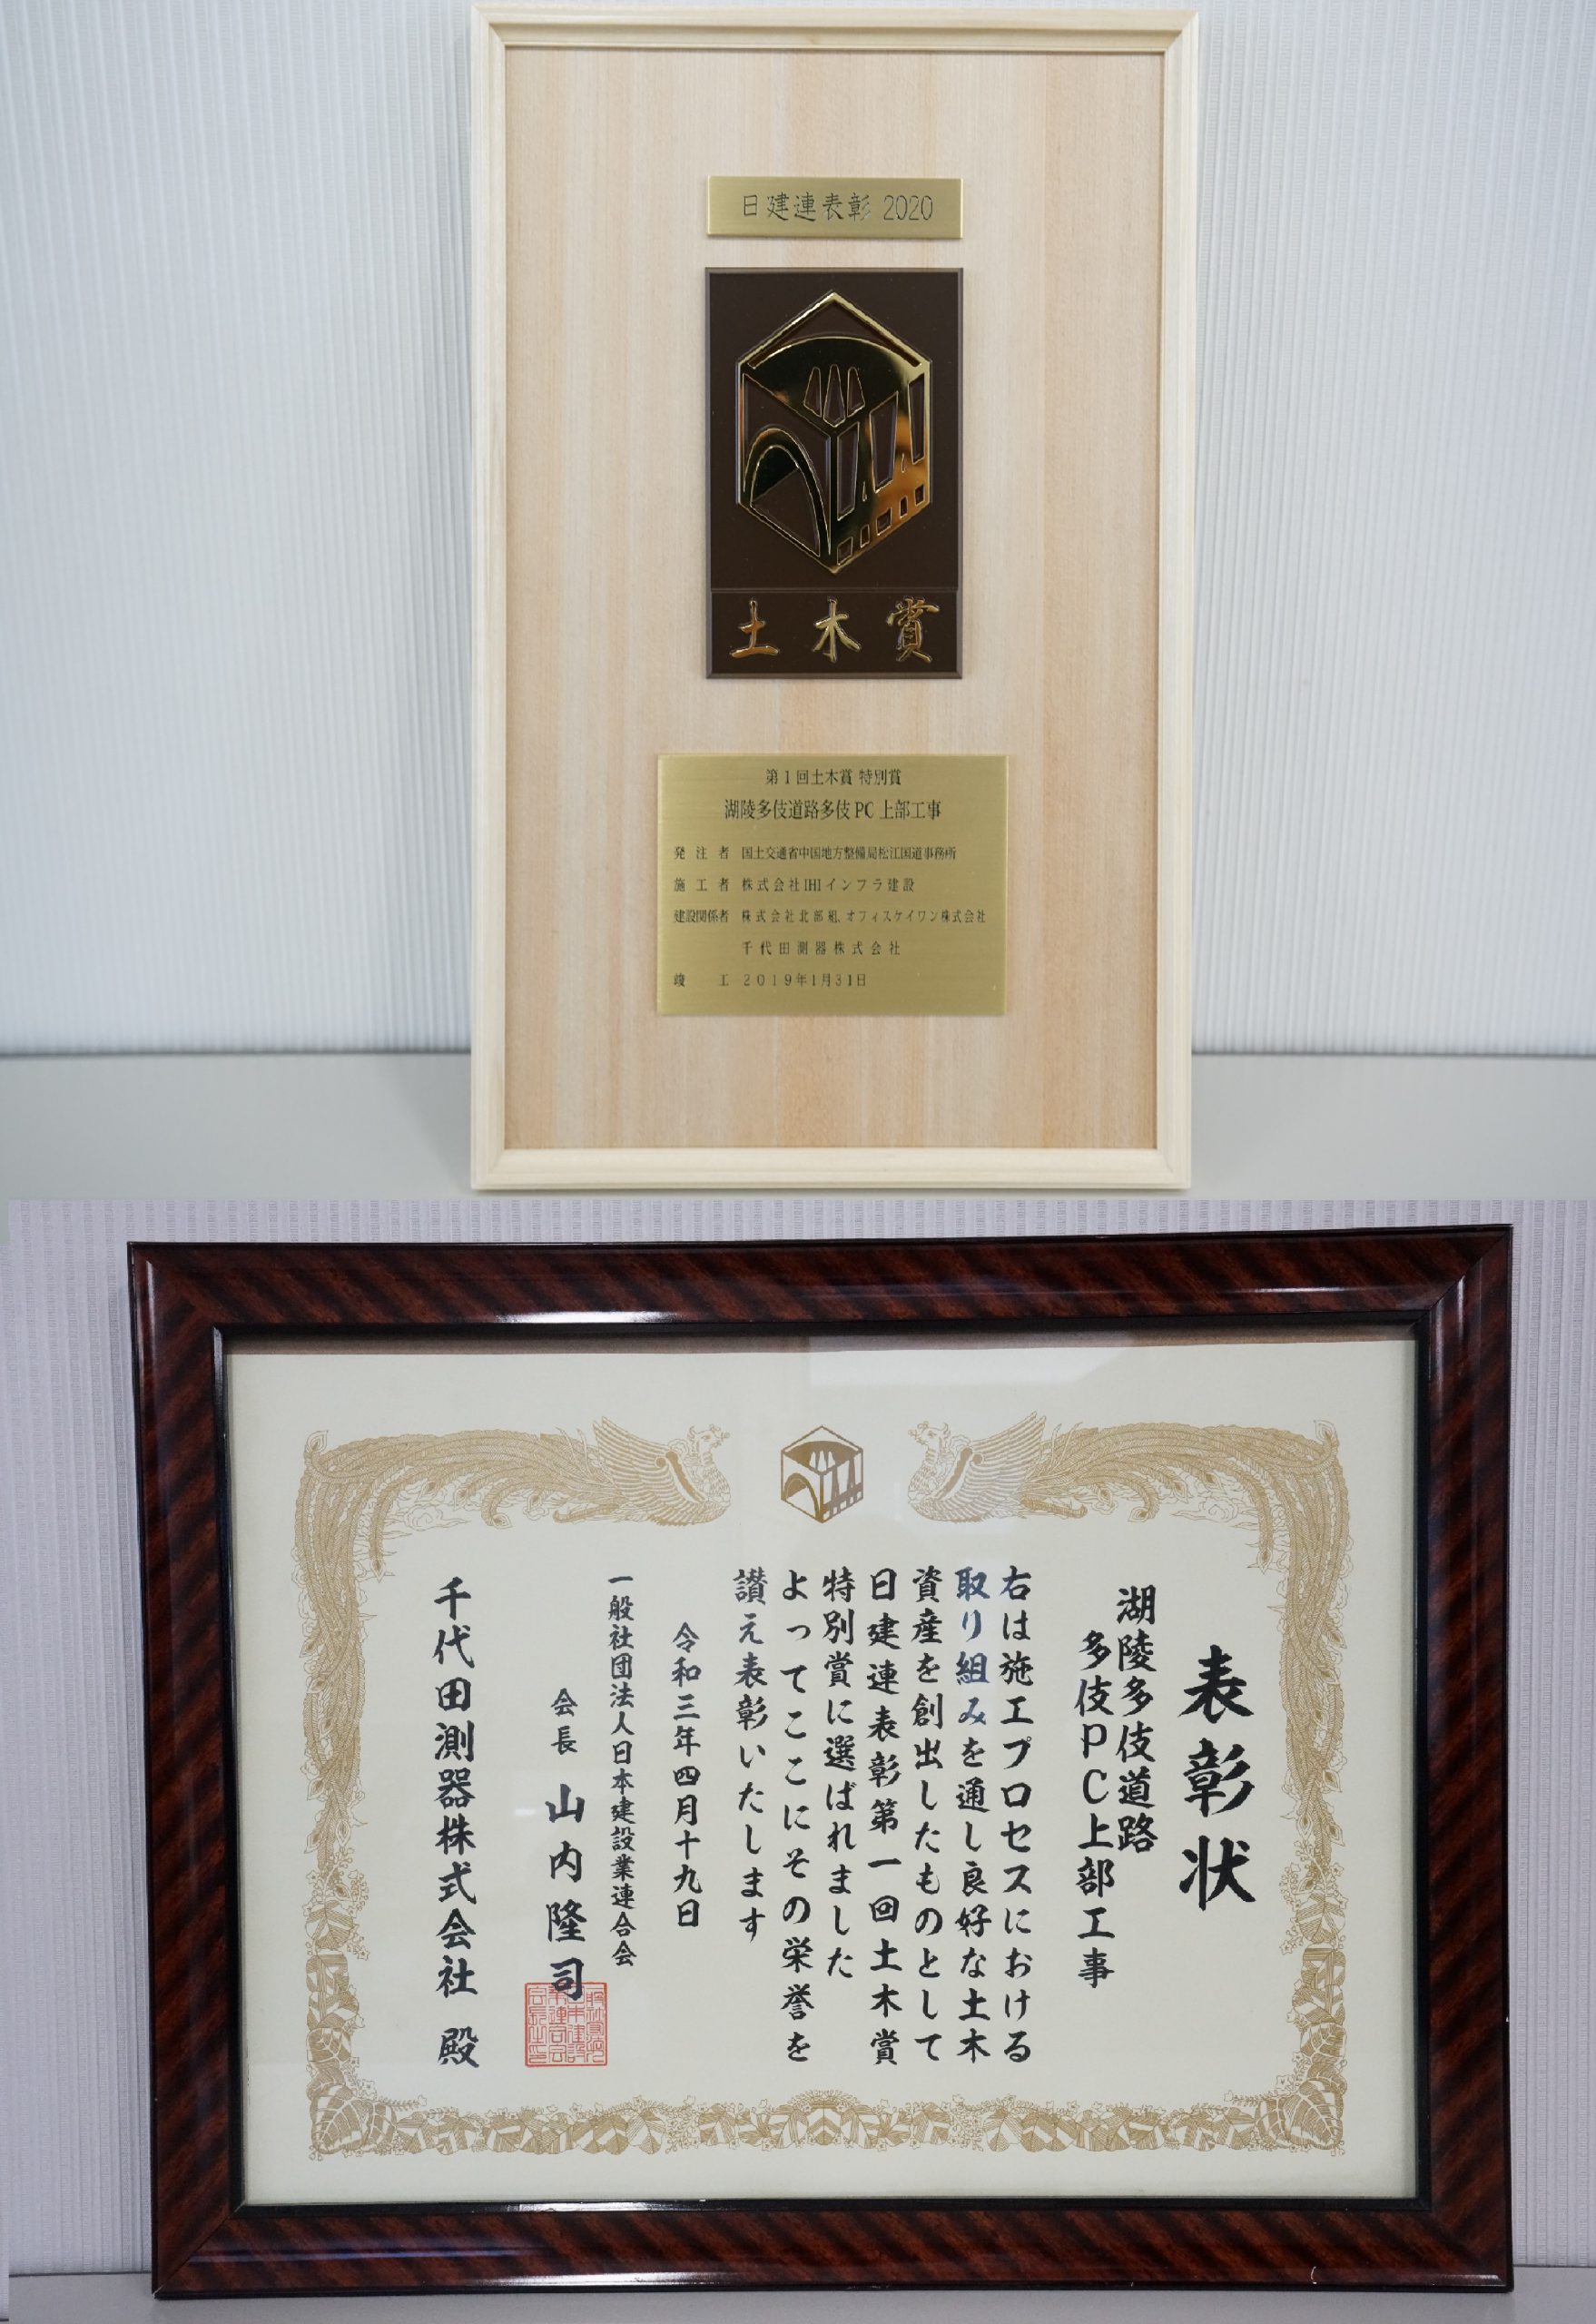 日建連表彰 2020
土木賞
第1回土木賞 特別賞
湖陵多伎道路多伎PC上部工事
発注者 国土交通省中国地方整備局松江国道事務所
施工者 株式会社IHIインフラ建設
建設関係者 株式会社北部組、オフィスケイワン株式会社
千代田測器株式会社
竣工 2019年1月31日
表彰状
湖陵多伎道路
多伎PC上部工事
右は施工プロセスにおける
取り組みを通し良好な土木
資産を創出したものとして
日建連表彰第一回土木賞
特別賞に選ばれました
よってここにその栄誉を
讃え表彰いたします
令和三年四月十九日
一般社団法人日本建設業連合会
会長 山内隆司
千代田測器株式会社 殿